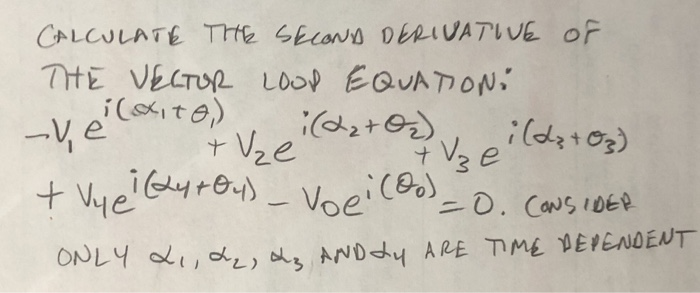 CALCULATE THE SECOND DERIVATIVE OF
THE VECTOR LOOP EQUATION:
-V₁ e^{i(α₁+θ₁)} + V₂ e^{i(α₂+θ₂)} + V₃ e^{i(α₃+θ₃)}
+ V₄ e^{i(α₄+θ₄)} - V₀ e^{i(θ₀)} = 0. CONSIDER
ONLY α₁, α₂, α₃ AND α₄ ARE TIME DEPENDENT